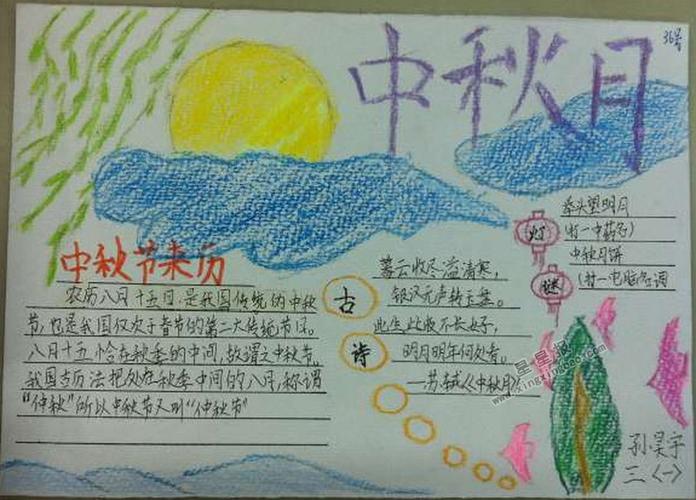 36号
中秋月
中秋节来历
农历八月十五日,是我国传统的中秋
节,也是我国仅次于春节的第二大传统节日。
八月十五恰在秋季的中间,故谓之中秋节。
我国古历法把处在秋季中间的八月,称谓
“仲秋”所以中秋节又叫“仲秋节”
古诗
暮云收尽溢清寒,
银汉无声转玉盘。
此生此夜不长好,
明月明年何处看。
—苏轼《中秋月》
灯谜
举头望明月
(打一中药名)
中秋月饼
(打一电脑名词
星星报
www.xingxingbao.cn
孙昊宇
三〈一〉